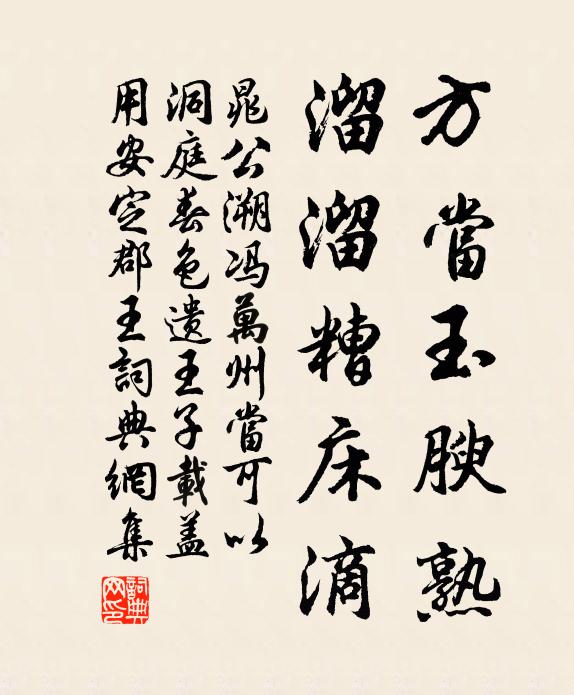 方當玉腴熟
溜溜糟床滴
晁公溯冯萬州當可以
洞庭春色遗王子載盖
用安定郡王詞典網集
詞典网印